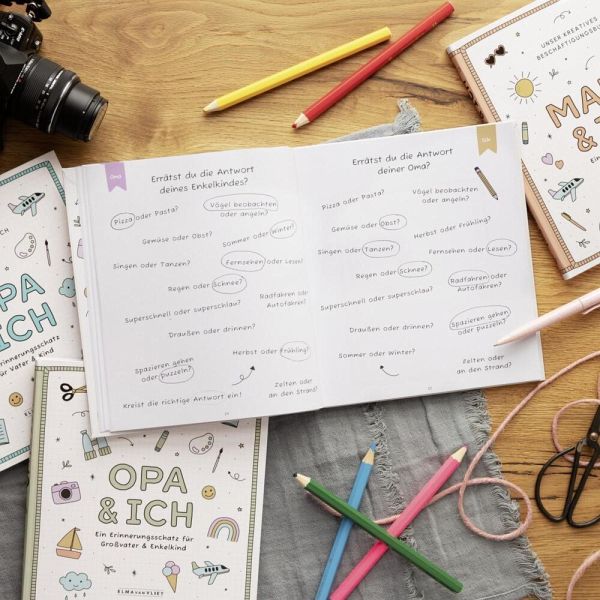 UNSER KREATIVES
BESCHÄFTIGUNGSBU
MA
& I
Ein
Oma
Errätst du die Antwort
deines Enkelkindes?
Pizza oder Pasta?
Vögel beobachten
oder angeln?
Gemüse oder Obst?
Sommer oder Winter?
Singen oder Tanzen?
Fernsehen oder Lesen?
Regen oder Schnee?
Radfahren oder
Autofahren?
Superschnell oder superschlau?
Draußen oder drinnen?
Spazieren gehen
oder puzzeln?
Herbst oder Frühling?
Zelten oder
an den Strand?
Kreist die richtige Antwort ein!
Ich
Errätst du die Antwort
deiner Oma?
Pizza oder Pasta?
Vögel beobachten
oder angeln?
Gemüse oder Obst?
Herbst oder Frühling?
Singen oder Tanzen?
Fernsehen oder Lesen?
Regen oder Schnee?
Radfahren oder
Autofahren?
Superschnell oder superschlau?
Draußen oder drinnen?
Spazieren gehen
oder puzzeln?
Sommer oder Winter?
Zelten oder
an den Strand?
PA
& ICH
Erinnerungsschatz
für Vater & Kind
OPA
& ICH
Ein Erinnerungsschatz für
Großvater & Enkelkind
ELMA VAN VLIET